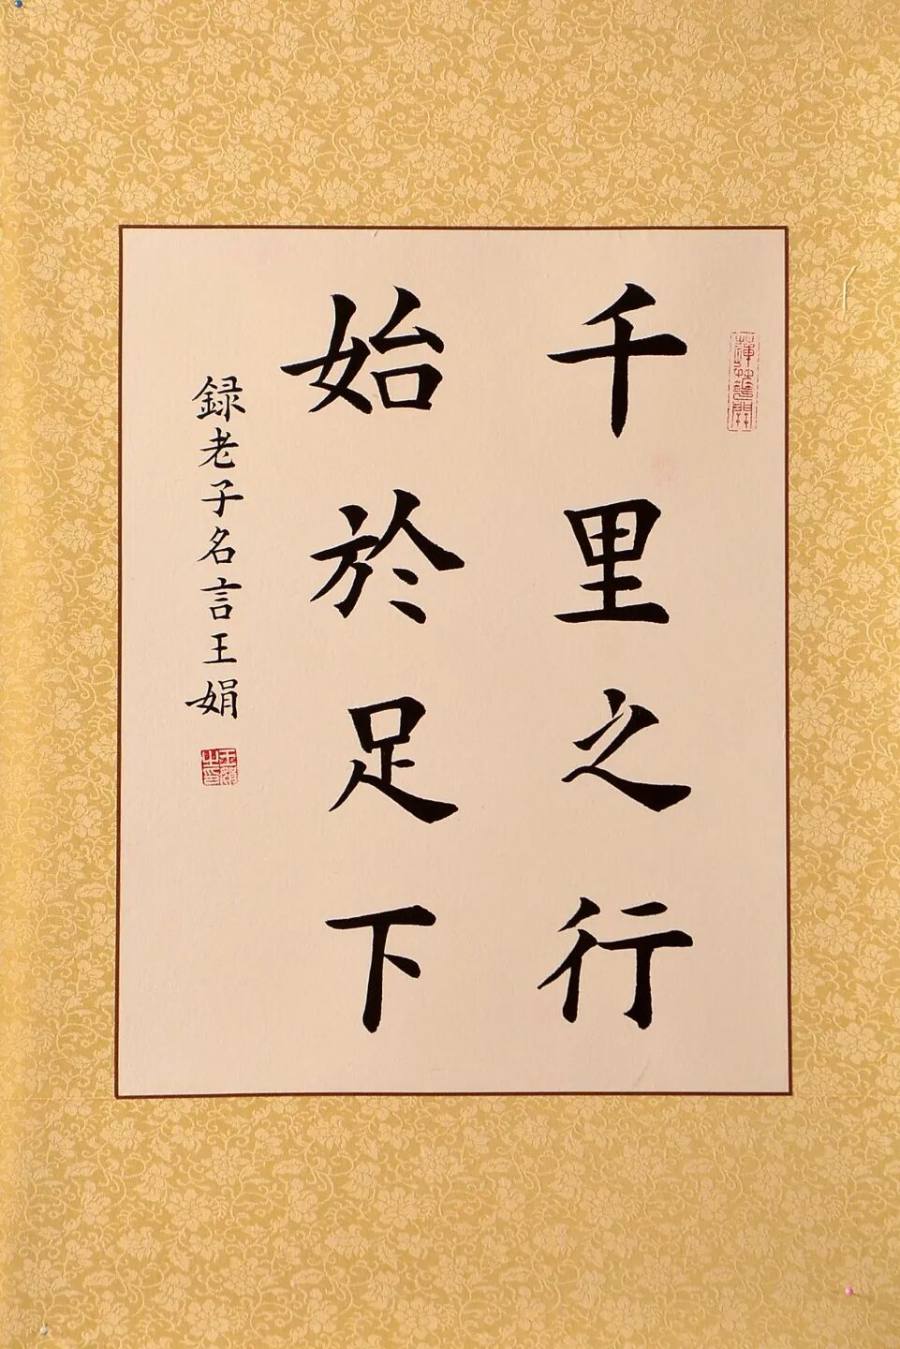 千里之行
始於足下
録老子名言王娟